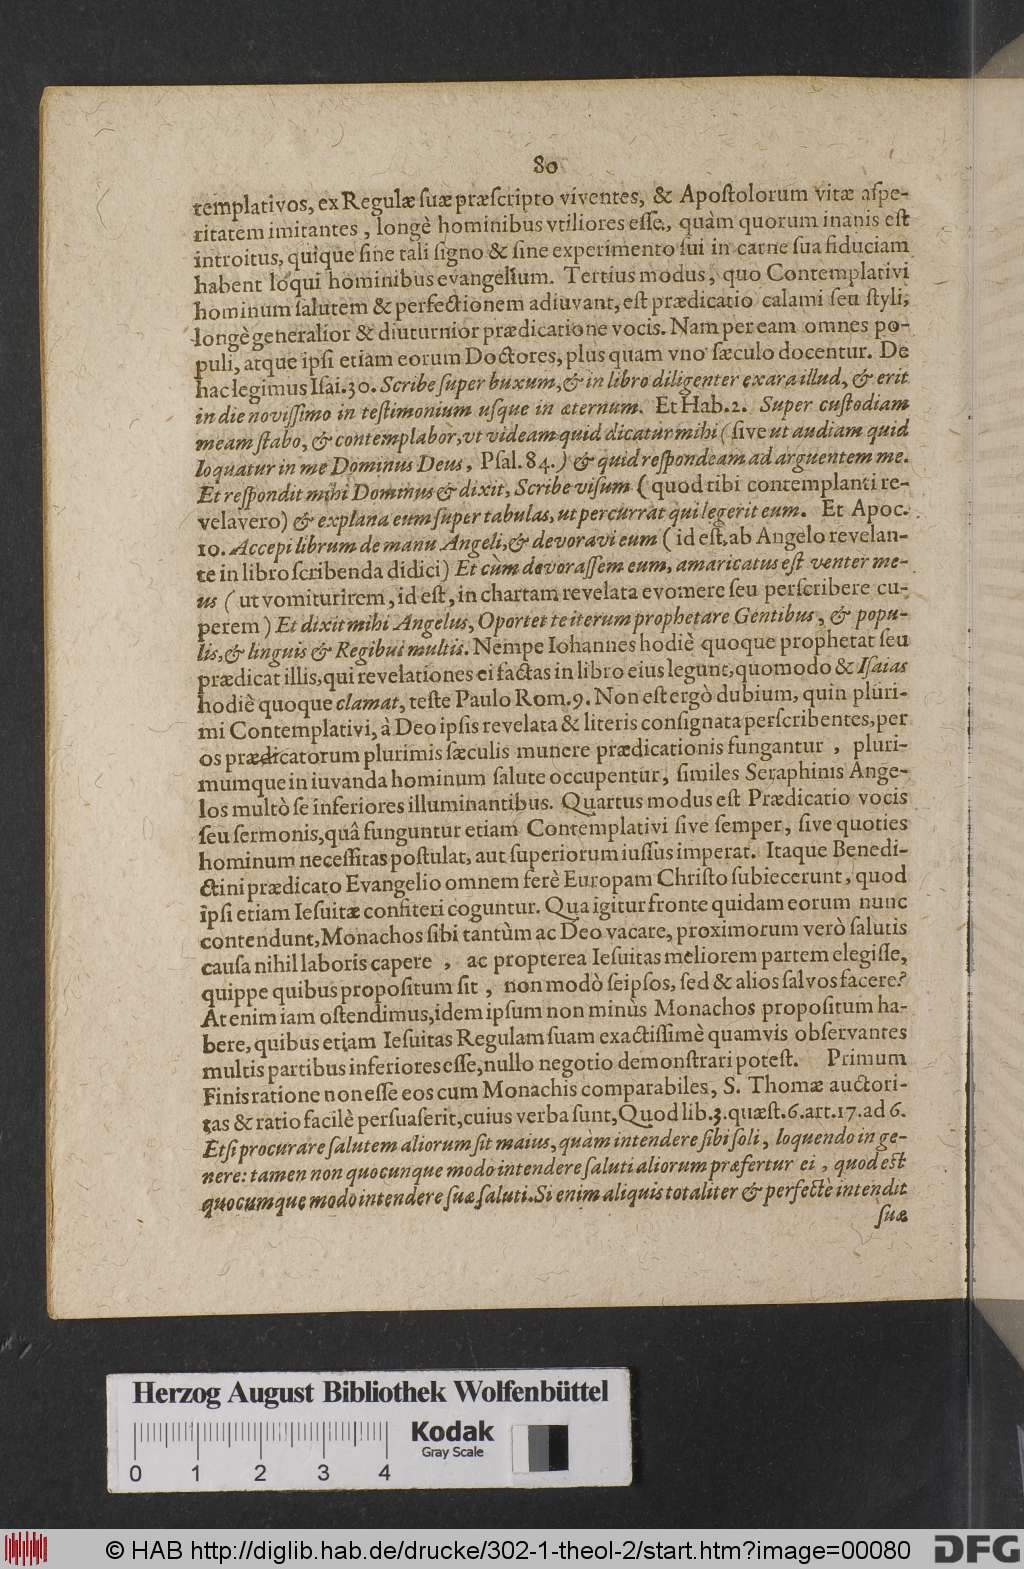 80
templativos, ex Regulæ ſuæ præſcripto viventes, & Apoſtolorum vitæ aſpe-
ritatem imitantes, longè hominibus vtiliores eſſe, quàm quorum inanis eſt
introitus, quique ſine tali ſigno & ſine experimento ſui in carne ſua fiduciam
habent loqui hominibus evangelium. Tertius modus, quo Contemplativi
hominum ſalutem & perfectionem adiuvant, eſt prædicatio calami ſeu ſtyli,
longè generalior & diuturnior prædicatione vocis. Nam per eam omnes po-
puli, atque ipſi etiam eorum Doctores, plus quam vno ſæculo docentur. De
hac legimus Iſai.30. Scribe ſuper buxum, & in libro diligenter exara illud, & erit
in die noviſſimo in teſtimonium uſque in æternum. Et Hab.2. Super cuſtodiam
meam ſtabo, & contemplabor, vt videam quid dicatur mihi (ſive ut audiam quid
loquatur in me Dominus Deus, Pſal.84.) & quid reſpondeam ad arguentem me.
Et reſpondit mihi Dominus & dixit, Scribe viſum (quod tibi contemplanti re-
velavero) & explana eum ſuper tabulas, ut percurrat qui legerit eum. Et Apoc.
10. Accepi librum de manu Angeli, & devoravi eum (id eſt, ab Angelo revelan-
te in libro ſcribenda didici) Et cùm devoraſſem eum, amaricatus eſt venter me-
us (ut vomiturirem, id eſt, in chartam revelata evomere ſeu perſcribere cu-
perem) Et dixit mihi Angelus, Oportet te iterum prophetare Gentibus, & popu-
lis, & linguis & Regibus multis. Nempe Iohannes hodiè quoque prophetat ſeu
prædicat illis, qui revelationes ei factas in libro eius legunt, quomodo & Iſaias
hodiè quoque clamat, teſte Paulo Rom.9. Non eſt ergò dubium, quin pluri-
mi Contemplativi, à Deo ipſis revelata & literis conſignata perſcribentes, per
os prædicatorum plurimis ſæculis munere prædicationis fungantur, pluri-
mumque in iuvanda hominum ſalute occupentur, ſimiles Seraphinis Ange-
los multò ſe inferiores illuminantibus. Quartus modus eſt Prædicatio vocis
ſeu ſermonis, quâ funguntur etiam Contemplativi ſive ſemper, ſive quoties
hominum neceſſitas poſtulat, aut ſuperiorum iuſſus imperat. Itaque Benedi-
ctini prædicato Evangelio omnem ferè Europam Chriſto ſubiecerunt, quod
ipſi etiam Ieſuitæ confiteri coguntur. Qua igitur fronte quidam eorum nunc
contendunt, Monachos ſibi tantùm ac Deo vacare, proximorum verò ſalutis
cauſa nihil laboris capere, ac propterea Ieſuitas meliorem partem elegiſſe,
quippe quibus propoſitum ſit, non modò ſeipſos, ſed & alios ſalvos facere?
At enim iam oſtendimus, idem ipſum non minùs Monachos propoſitum ha-
bere, quibus etiam Ieſuitas Regulam ſuam exactiſſimè quamvis obſervantes
multis partibus inferiores eſſe, nullo negotio demonſtrari poteſt. Primum
Finis ratione non eſſe eos cum Monachis comparabiles, S. Thomæ auctori-
tas & ratio facilè perſuaſerit, cuius verba ſunt, Quod lib.3. quæſt.6. art.17. ad 6.
Etſi procurare ſalutem aliorum ſit maius, quàm intendere ſibi ſoli, loquendo in ge-
nere: tamen non quocunque modo intendere ſaluti aliorum præfertur ei, quod eſt
quocumque modo intendere ſuæ ſaluti. Si enim aliquis totaliter & perfectè intendit
ſuæ
Herzog August Bibliothek Wolfenbüttel
Kodak
Gray Scale
0 1 2 3 4
© HAB http://diglib.hab.de/drucke/302-1-theol-2/start.htm?image=00080
DFG